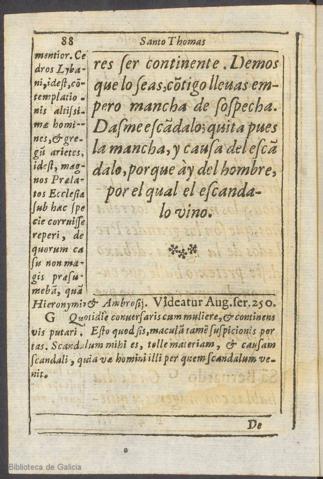 88 Santo Thomas
mentior. Ce
dros Lyba-
ni, idest, cõ-
templatio-
nis altissi-
mæ homi-
nes, & gre-
gũ arietes,
idest, mag-
nos Præla-
tos Ecclesiæ
sub hac spe
cie corruisse
reperi, de
quorum ca
su non ma-
gis præsu-
mebã, quã
Hieronymi & Ambrosij. Videatur Aug. ser. 250.
res ser continente. Demos
que lo seas, cõtigo lleuas em-
pero mancha de sospecha.
Dasme escãdalo; quita pues
la mancha, y causa del escã
dalo, porque ày del hombre,
por el qual el escanda-
lo vino.
G Quotidie conuersaris cum muliere, & continens
vis putari. Esto quod sis, maculã tamẽ suspicionis por
tas. Scandalum mihi es, tolle materiam, & causam
scandali, quia væ homini illi per quem scandalum ve-
nit.
De
Biblioteca de Galicia